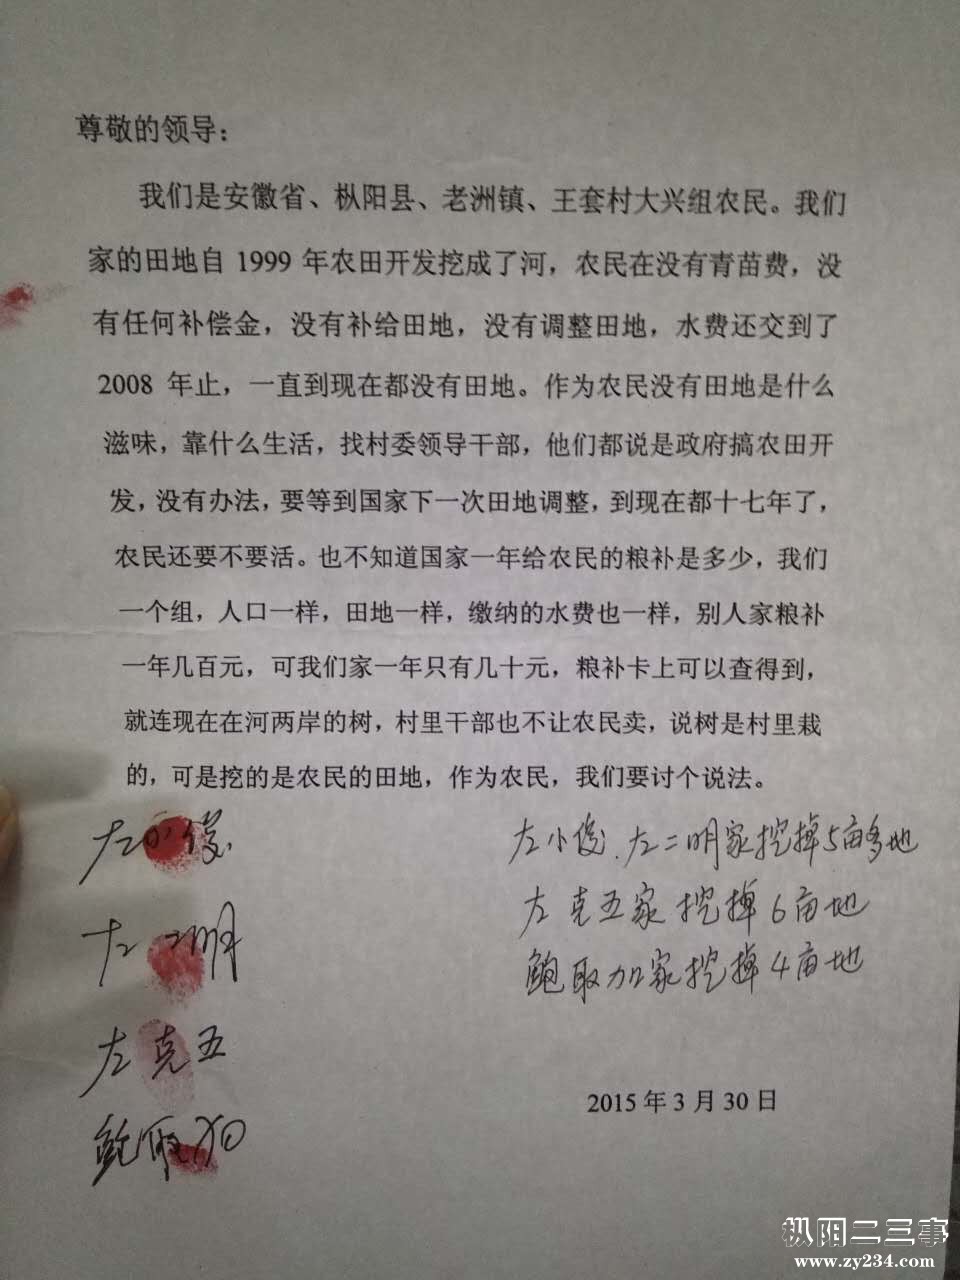 尊敬的领导：
我们是安徽省、枞阳县、老洲镇、王套村大兴组农民。我们
家的田地自 1999 年农田开发挖成了河，农民在没有青苗费，没
有任何补偿金，没有补给田地，没有调整田地，水费还交到了
2008 年止，一直到现在都没有田地。作为农民没有田地是什么
滋味，靠什么生活，找村委领导干部，他们都说是政府搞农田开
发，没有办法，要等到国家下一次田地调整，到现在都十七年了，
农民还要不要活。也不知道国家一年给农民的粮补是多少，我们
一个组，人口一样，田地一样，缴纳的水费也一样，别人家粮补
一年几百元，可我们家一年只有几十元，粮补卡上可以查得到，
就连现在在河两岸的树，村里干部也不让农民卖，说树是村里栽
的，可是挖的是农民的田地，作为农民，我们要讨个说法。
左小俊
左二明
左克五
鲍取加
左小俊.左二明家挖掉5亩多地
左克五家挖掉6亩地
鲍取加家挖掉4亩地
2015 年 3 月 30 日
枞阳二三事
www.zy234.com